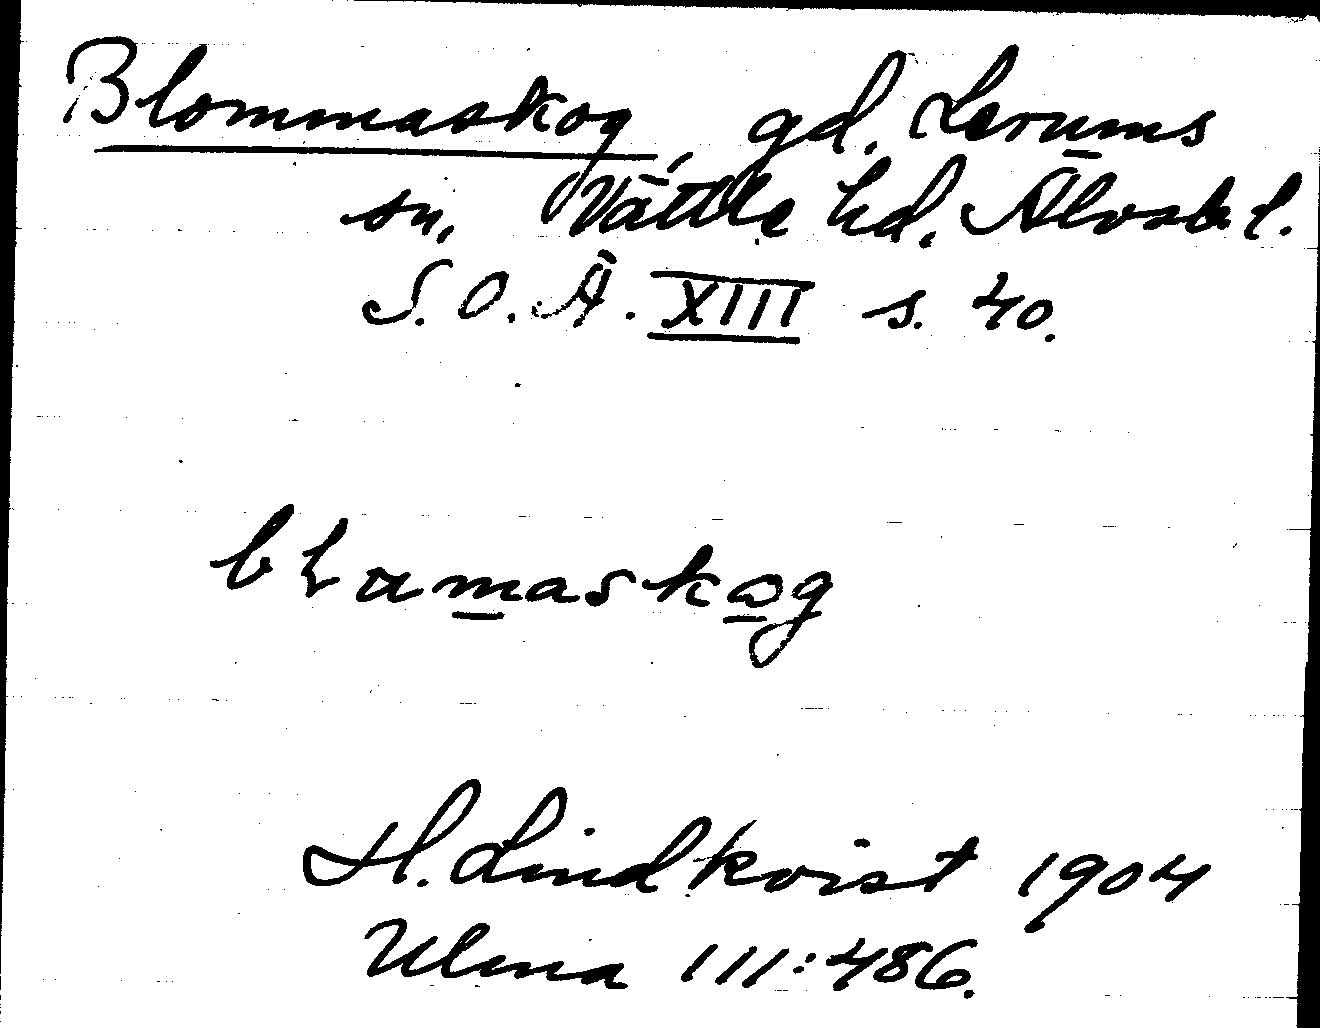 Blommaskog, gd. Lerums
sn, Vättle hd. Älvsb. l.
S. O. Ä. XIII s. 40.
blamaskog
H. Lindkvist 1904
Ulma 111:486.